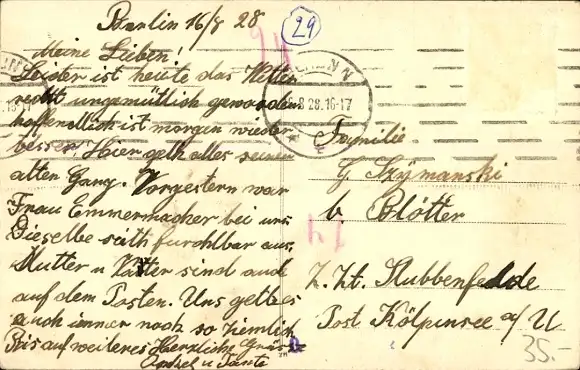 Berlin 16/8 28
29
Meine Lieben!
Leider ist heute das Wetter
recht ungemütlich geworden
hoffendlich ist morgen wieder
besser. Hier geht alles seinen
alten Gang. Vorgestern war
Frau Emmermacher bei uns
Dieselbe sieht furchtbar aus.
Mutter u Vatter sind auch
auf dem Posten. Uns geht es
auch immer noch so ziemlich
Bis auf weiteres Herzliche Grüsse
Onkel u Tante
8.28.16-17
Familie
G Szymanski
b Blötter
Z. Zt. Stubbenfelde
Post Kölpinsee a/ U
35.-